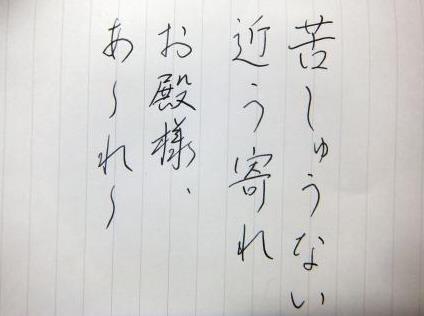 苦しゅうない
近う寄れ
お殿様、
あ〜れ〜